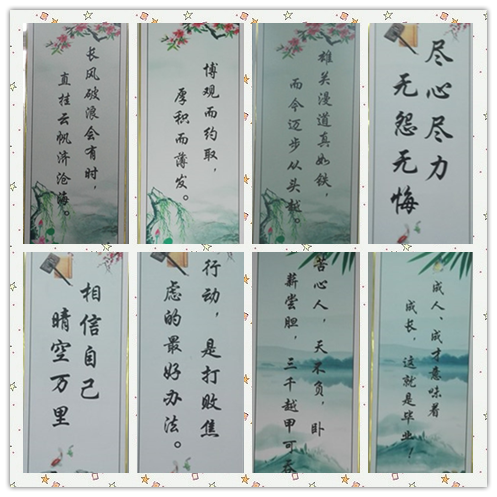 长风破浪会有时，
直挂云帆济沧海。
博观而约取，
厚积而薄发。
雄关漫道真如铁，
而今迈步从头越。
尽心尽力
无怨无悔
相信自己
晴空万里
行动，是打败焦
虑的最好办法。
苦心人，天不负，卧
薪尝胆，三千越甲可吞
成人、成才意味着
成长，这就是毕业！